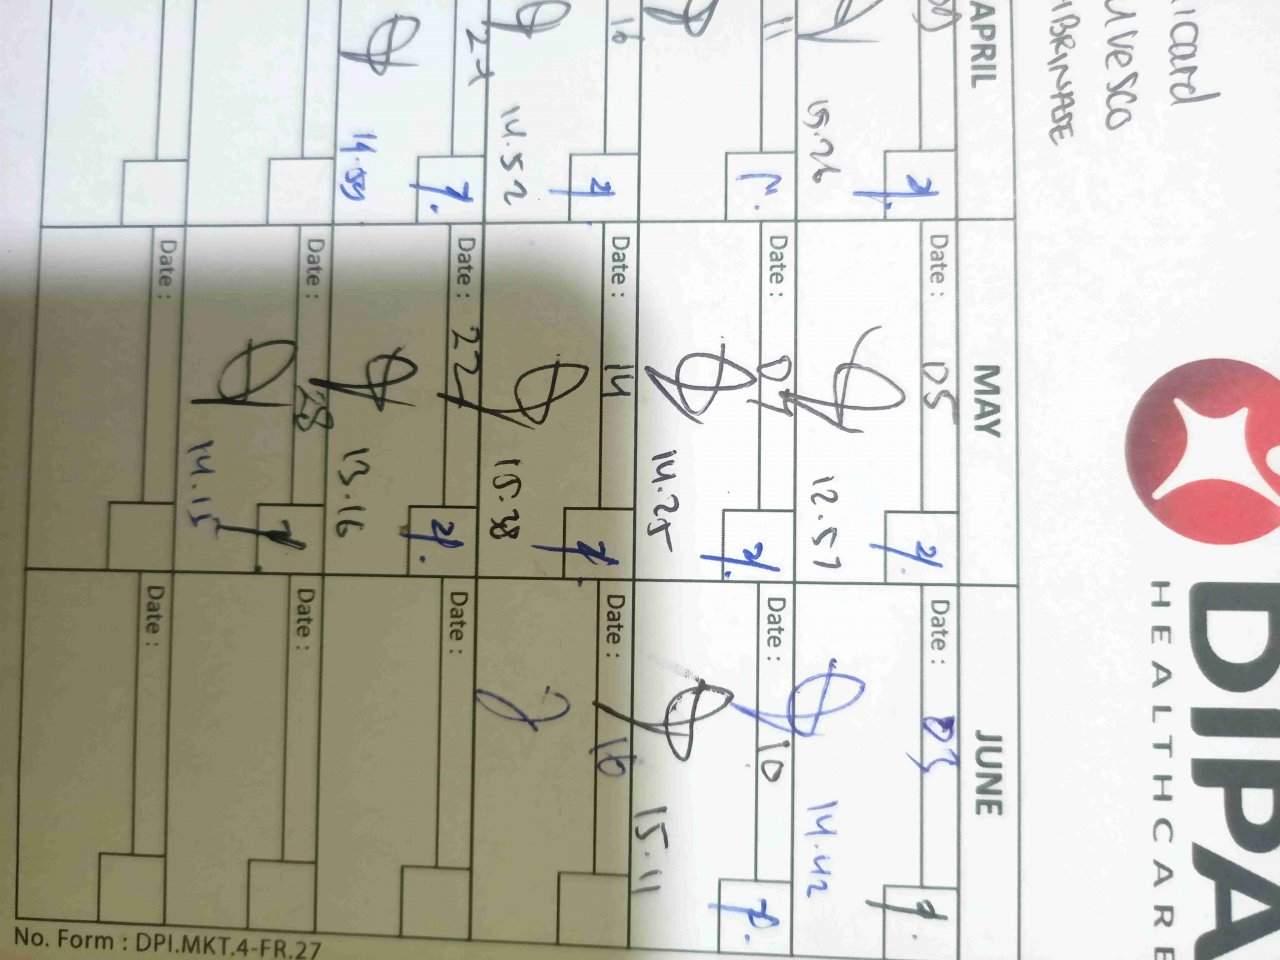 DIPA
HEALTHCARE
icard
uvesco
BRINADE
APRIL
MAY
JUNE
15.26
Date : 05
12.57
Date : 03
14.42
11
Date : 07
14.25
Date : 10
15.11
16
14.52
Date : 14
15.38
Date : 16
27
14.59
Date : 22
13.16
Date :
Date : 28
14.15
Date :
Date :
Date :
No. Form : DPI.MKT.4-FR.27